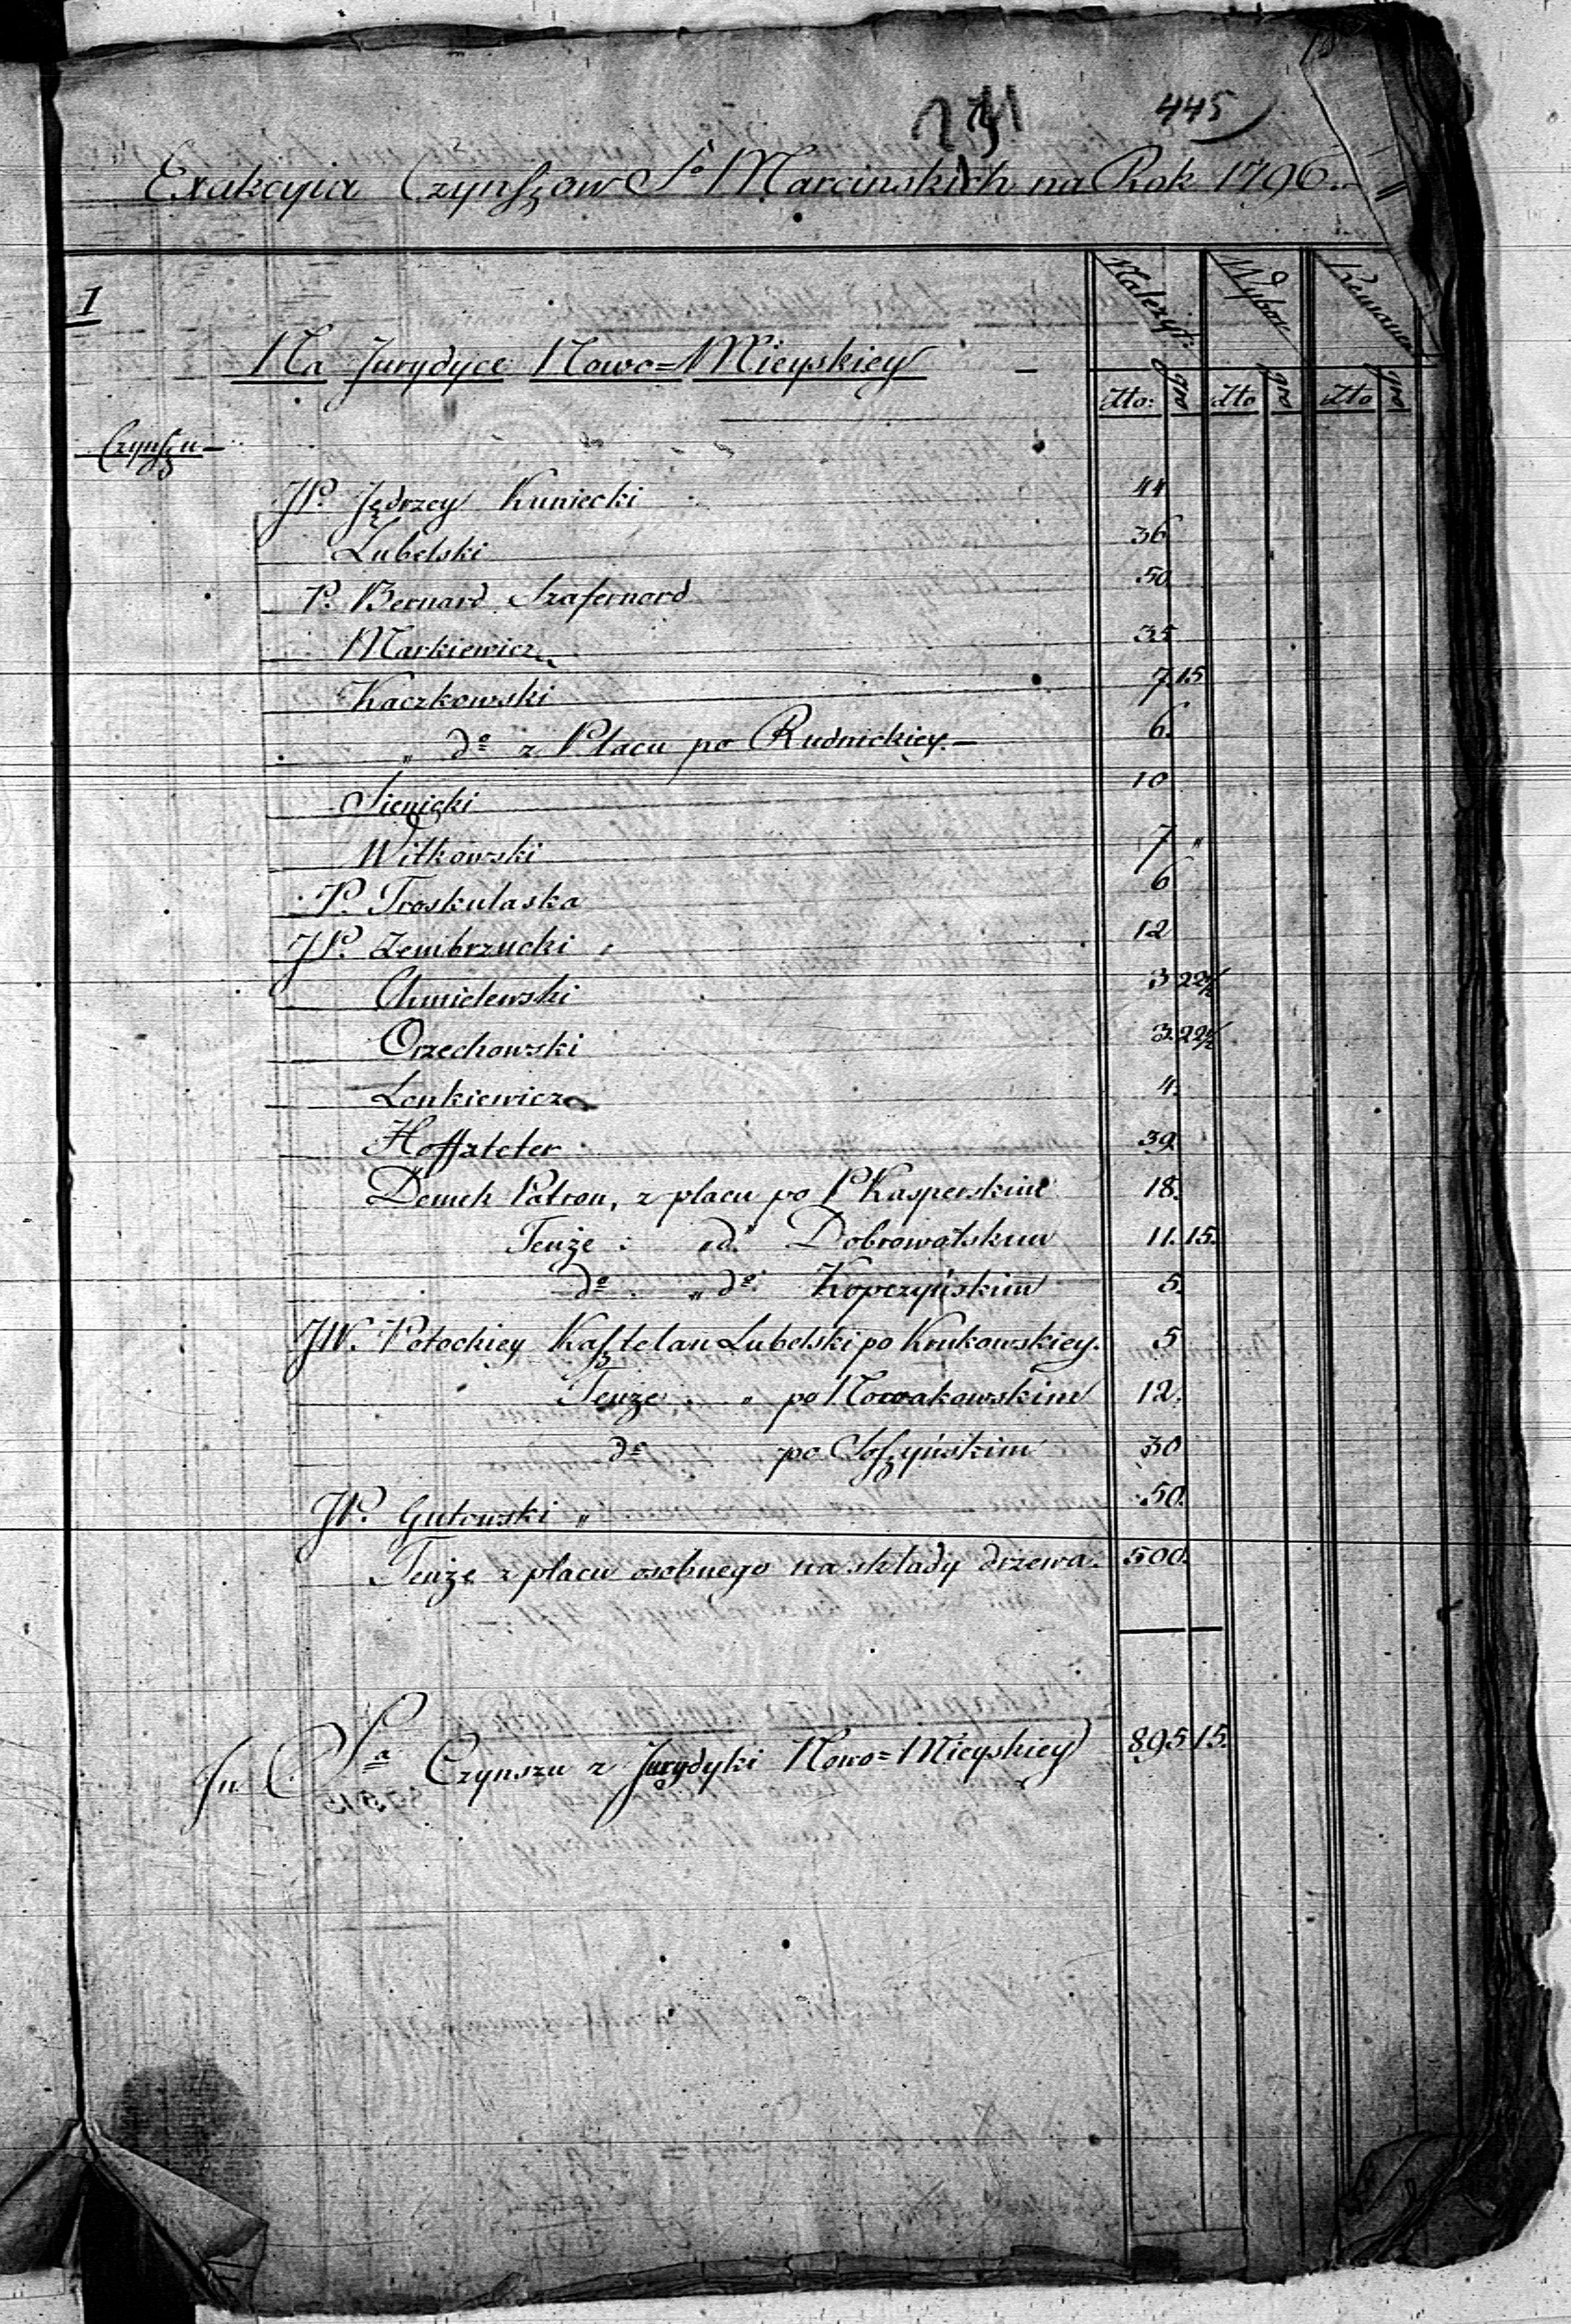 445
Exakcyia Czynszow S° Marcinskich na Rok 1796.
Należyt: Wybor Remanent
1
Na Jurydyce Nowo=Mieyskiey
zło: gro zło gro zło gro
Czynszu
JP. Jędrzey Kuniecki 44
Lubelski 36
P. Bernard Szafernard 50
Markiewicz 35
Kaczkowski 7. 15
" do z Placu po Rudnickiey.— 6.
Sienicki 10
Witkowski 7 "
P. Troskulaska 6
JP. Zembrzucki 12
Chmielewski 3 22½
Orzechowski 3. 22½
Lenkiewicz 4.
Hoffzteter 39.
Demeh Patron, z placu po P Kasperskim 18.
Tenże : id. Dobrowolskim 11. 15.
do . " do. Kopczyńskim 5.
JW. Potockiey Kasztelan Lubelski po Krukowskiey. 5
Tenże . . " po Nowakowskim 12.
do po Soszyńskim 30
JP. Gutowski " 50.
Tenże z placu osobnego na składy drzewa. 500.
Sa Czynszu z Jurydyki Nowo=Mieyskiey 895 15.